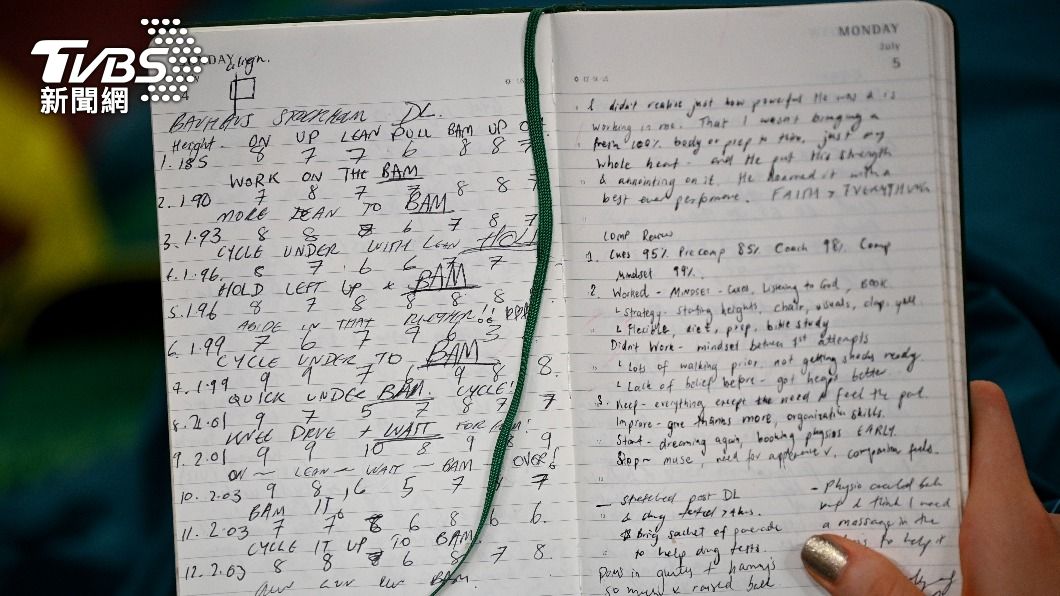 TVBS
新聞網
DAY
align.
4
BAUHAUS STOCKHOLM DL.
Height. ON UP LEAN PULL BAM UP
1. 1.85 8 7 7 6 8 8 7
WORK ON THE BAM
2. 1.90 7 8 7 7 8 8 7
MORE LEAN TO BAM
3. 1.93 8 8 8 6 7 8 7
CYCLE UNDER WITH LEAN HOLD
4. 1.96. 8 7 6 6 7 7
HOLD LEFT UP & BAM
5. 1.96 8 7 8 8 8 8
ABIDE IN THAT RHYTHM!!
6. 1.99 7 6 7 9 6 3
CYCLE UNDER TO BAM
7. 1.99 9 9 7 6 9 8 8.
QUICK UNDER BAM. CYCLE!
8. 2.01 9 7 5 7 8 7 7
KNEE DRIVE + WAIT FOR BAM!
9. 2.01 9 9 10 8 9 8 9
ON – LEAN – WAIT – BAM OVER!
10. 2.03 9 8 6 5 7 7
BAM IT
11. 2.03 7 7 8 6 8 6 6.
CYCLE IT UP TO BAM
12. 2.03 8 8 8 6 8 7 8.
RUN RUN RUN BAM.
MONDAY
July
5
I didn't realise just how powerful He was & is
working in me. That I wasn't bringing a
fresh 100% body or prep to this, just my
whole heart - and He put His strength
& annointing on it. He honored it with a
best ever performance. FAITH > EVERYTHING
Comp Review
1. Cues 95% Precomp 85% Coach 98% Comp
Mindset 99%.
2. Worked - Mindset - cues, listening to God, BOOK
Strategy - starting heights, chair, visuals, clap, yell
Flexible, diet, prep, bible study
Didn't work - mindset between 1st attempts
Lots of walking prior, not getting snacks ready
Lack of belief before - got heaps better
3. Keep - everything except the need to feel the
Improve - give thanks more, organization skills.
Start - dreaming again, booking physios EARLY.
Stop - music, need for approval, comparison
– Stretched post DL
& drug tested
Bring sachet of
to help drug tests.
Doms in glutes + hammys
so much & raised
– Physio
and I think I need
a massage in the
to help it